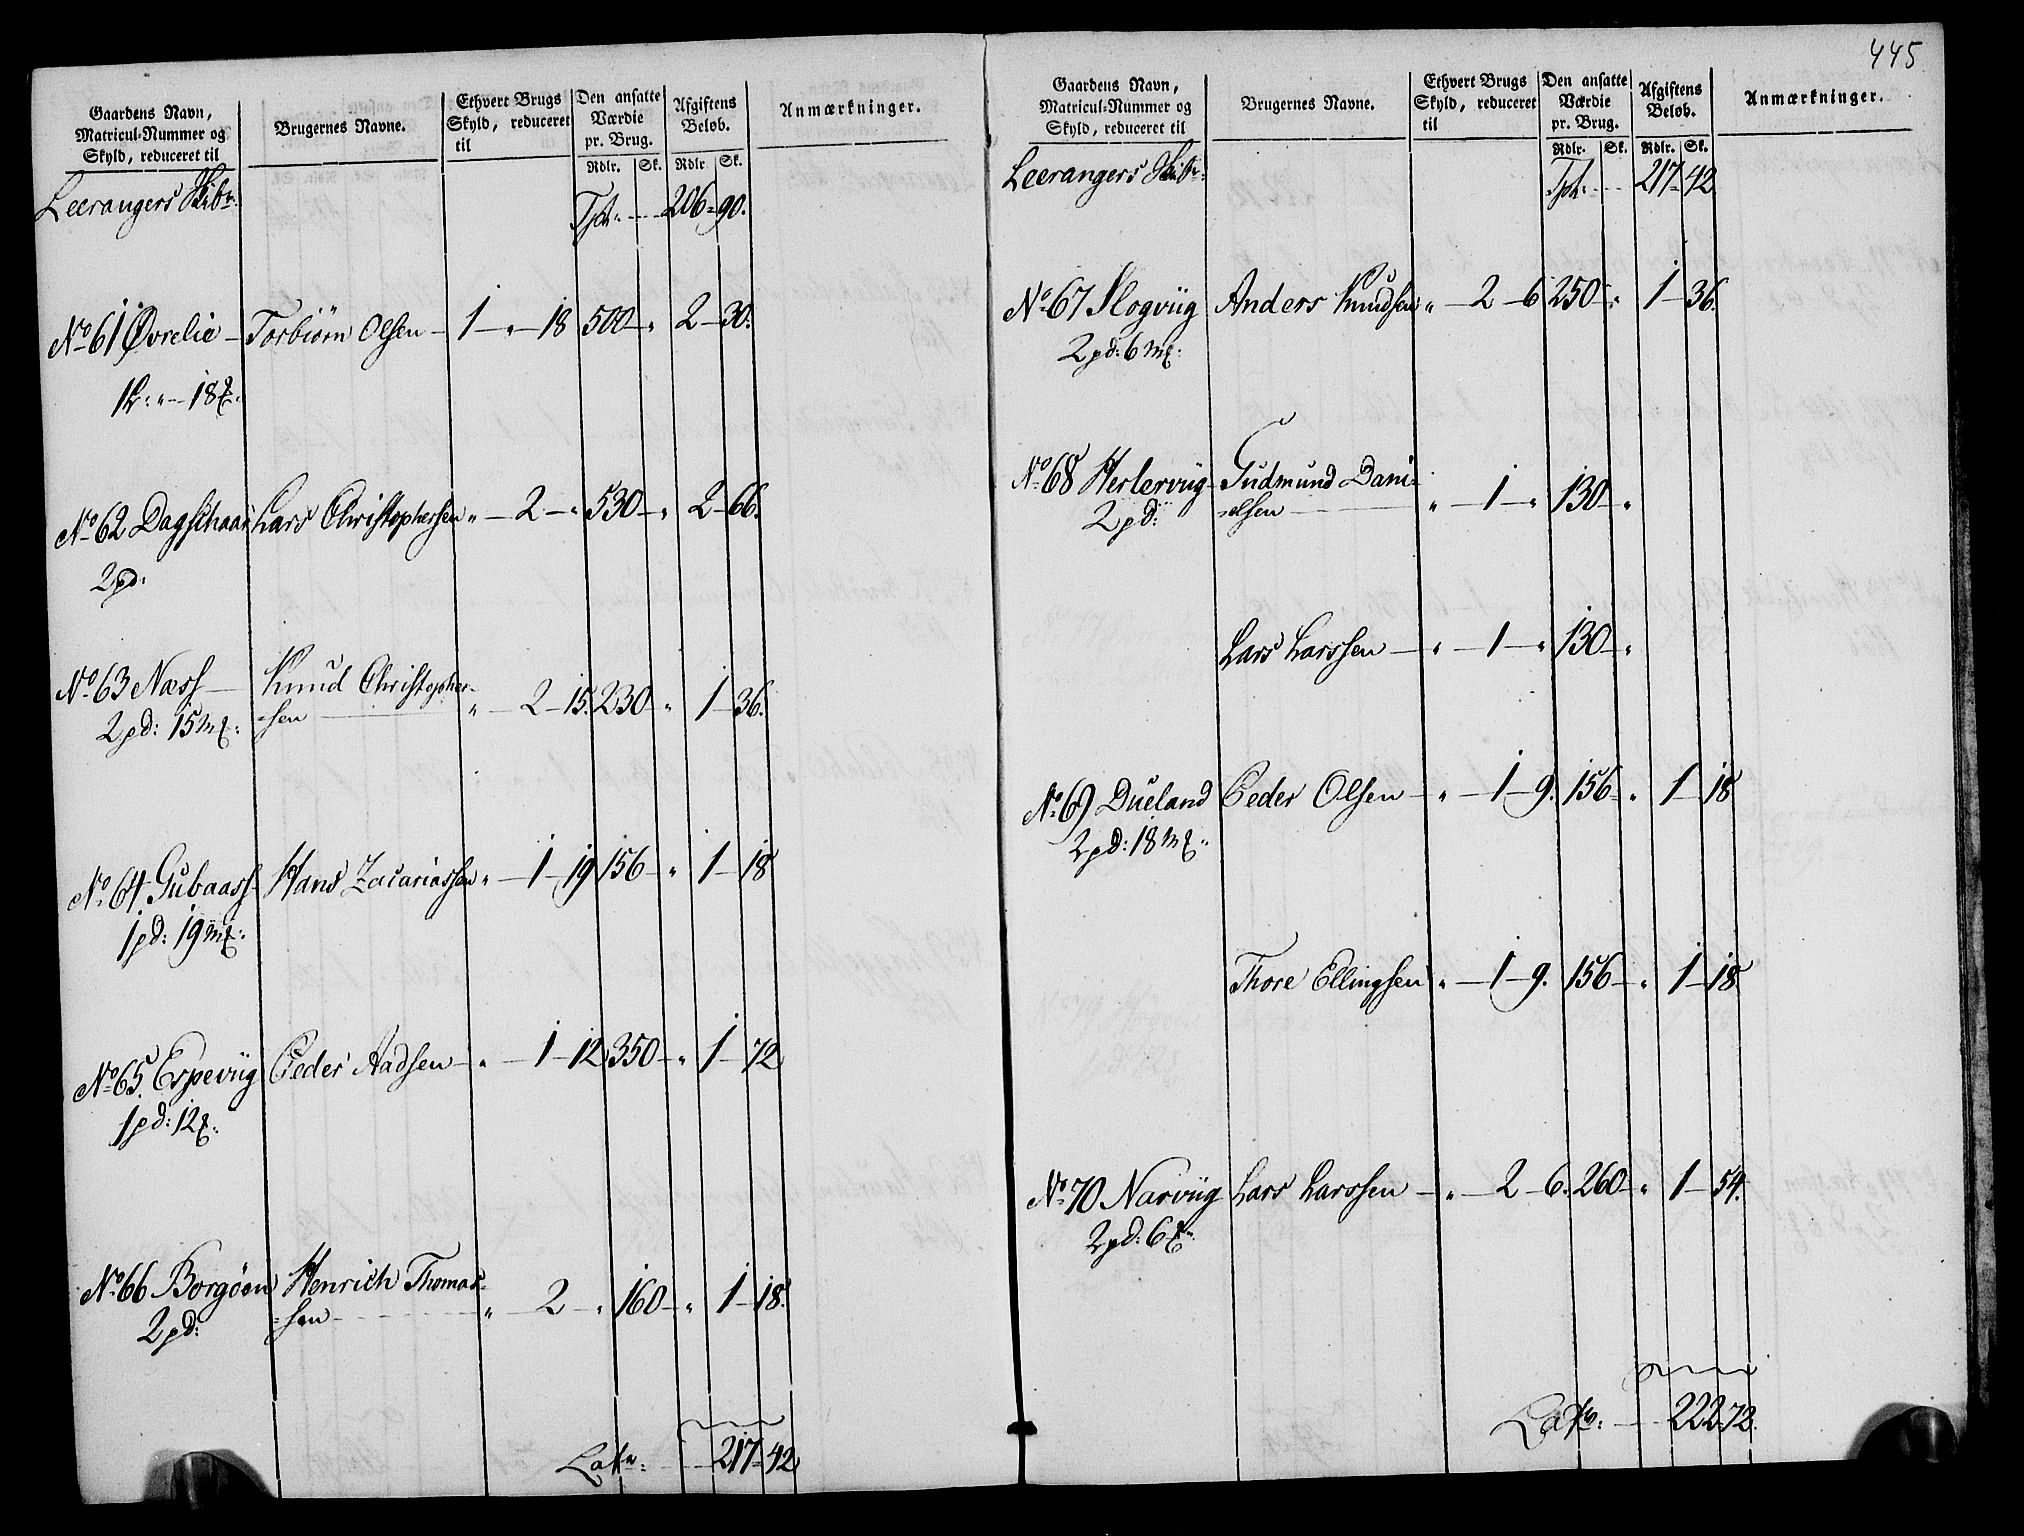 445
Gaardens Navn,
Matricul-Nummer og
Skyld, reduceret til
Brugernes Navne.
Ethvert Brugs
Skyld, reduceret
til
Den ansatte
Værdie
pr. Brug.
Rdlr. Sk.
Afgiftens
Beløb.
Rdlr Sk.
Anmærkninger.
Leerangers Skibr: Tpt: 206 = 90.
No 61 Øvrelie — Torbiörn Olsen — 1 — " — 18 500 — " 2 — 30.
1 L: " — 18 ℔:
No 62 Dagschaar Lars Christophersen " — 2 — " 530 — " 2 — 66.
2 pd:
No 63 Næss — Knud Christopher-
2 pd: 15 m℔: -sen " — 2 — 15. 230 — " 1 — 36.
No 64 Gubaass Hans Zacariassen " — 1 — 19 156 — " 1 — 18
1 pd: 19 m℔:
No 65. Espeviig Peder Aadsen — " — 1 — 12 350 — " 1 — 72
1 pd: 12 ℔:
No 66 Borgöen Henrich Thomas-
2 pd: =sen " — 2 — " 160 — " 1 — 18.
Latr: 217 = 42
Gaardens Navn,
Matricul-Nummer og
Skyld, reduceret til
Brugernes Navne.
Ethvert Brugs
Skyld, reduceret
til
Den ansatte
Værdie
pr. Brug.
Rdlr. Sk.
Afgiftens
Beløb.
Rdlr. Sk.
Anmærkninger.
Leerangers Skibr: Tpt: 217 = 42
No 67 Slogviig Anders Knudsen " — 2 — 6 250 — " 1 — 36.
2 pd: 6 m℔:
No 68 Herlerviig — Gudmund Dani-
2 pd: =elsen " — 1 — " 130 — "
Lars Larssen — " — 1 — " 130 — "
No 69 Dueland Peder Olsen — " — 1 — 9. 156 — " 1 — 18
2 pd: 18 m℔:
Thore Ellingsen " — 1 — 9. 156 — " 1 — 18
No 70 Narviig Lars Larssen — " — 2 — 6. 260 — " 1 — 54.
2 pd: 6 ℔:
Latr: 222 = 72.